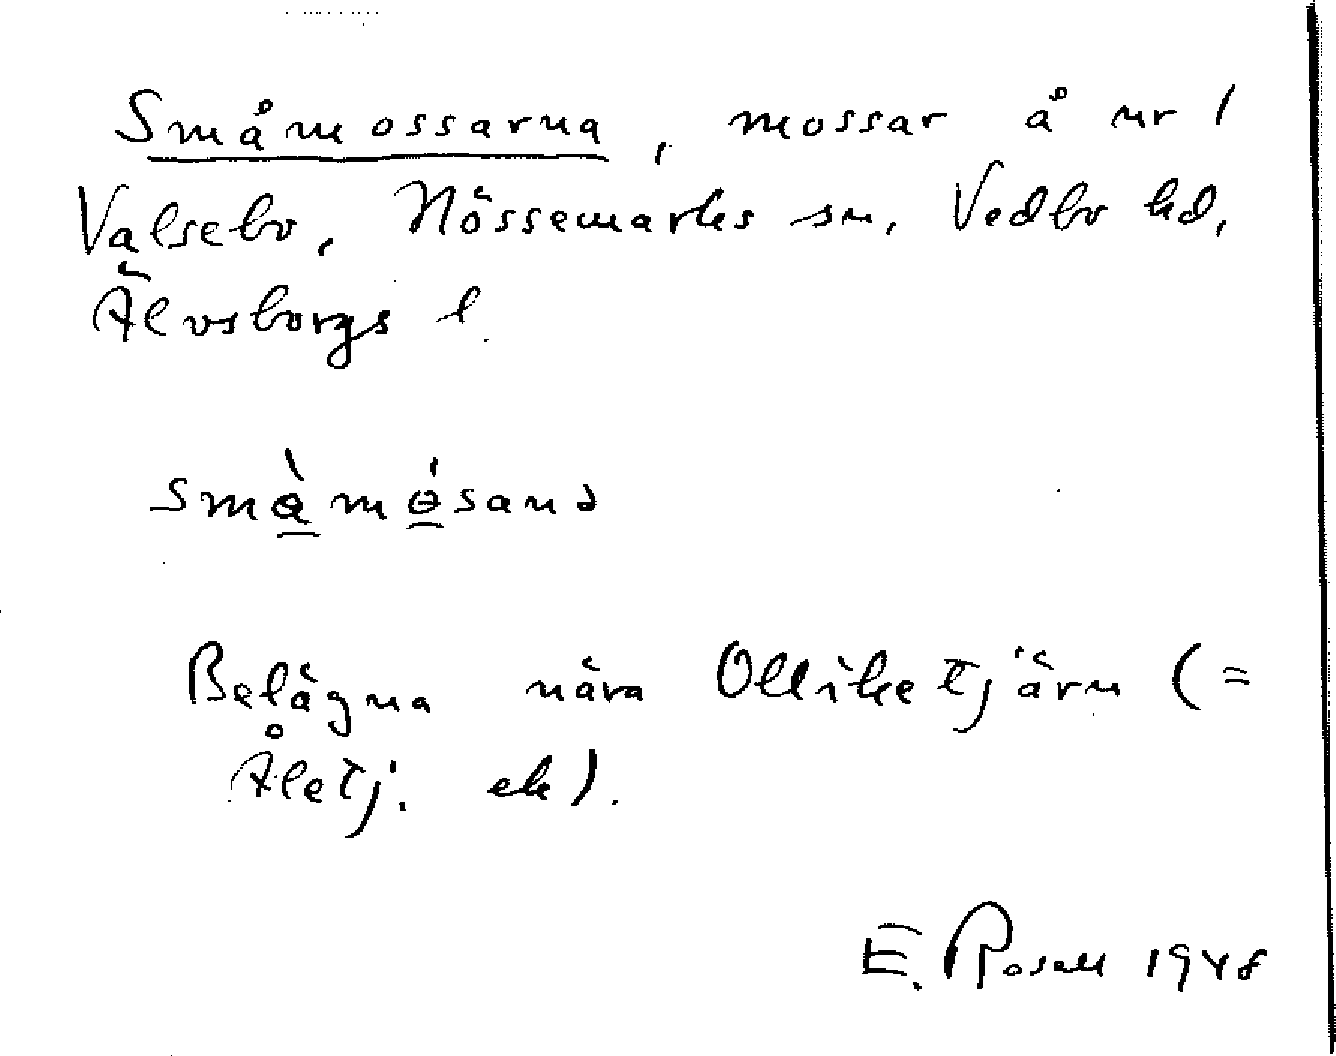 Småmossarna, mossar å nr 1
Valsebo, Nössemarks sn, Vedbo hd,
Älvsborgs l.
småmósana
Belägna nära Olliketjärn (=
Åletj. ek).
E. Rosell 1948